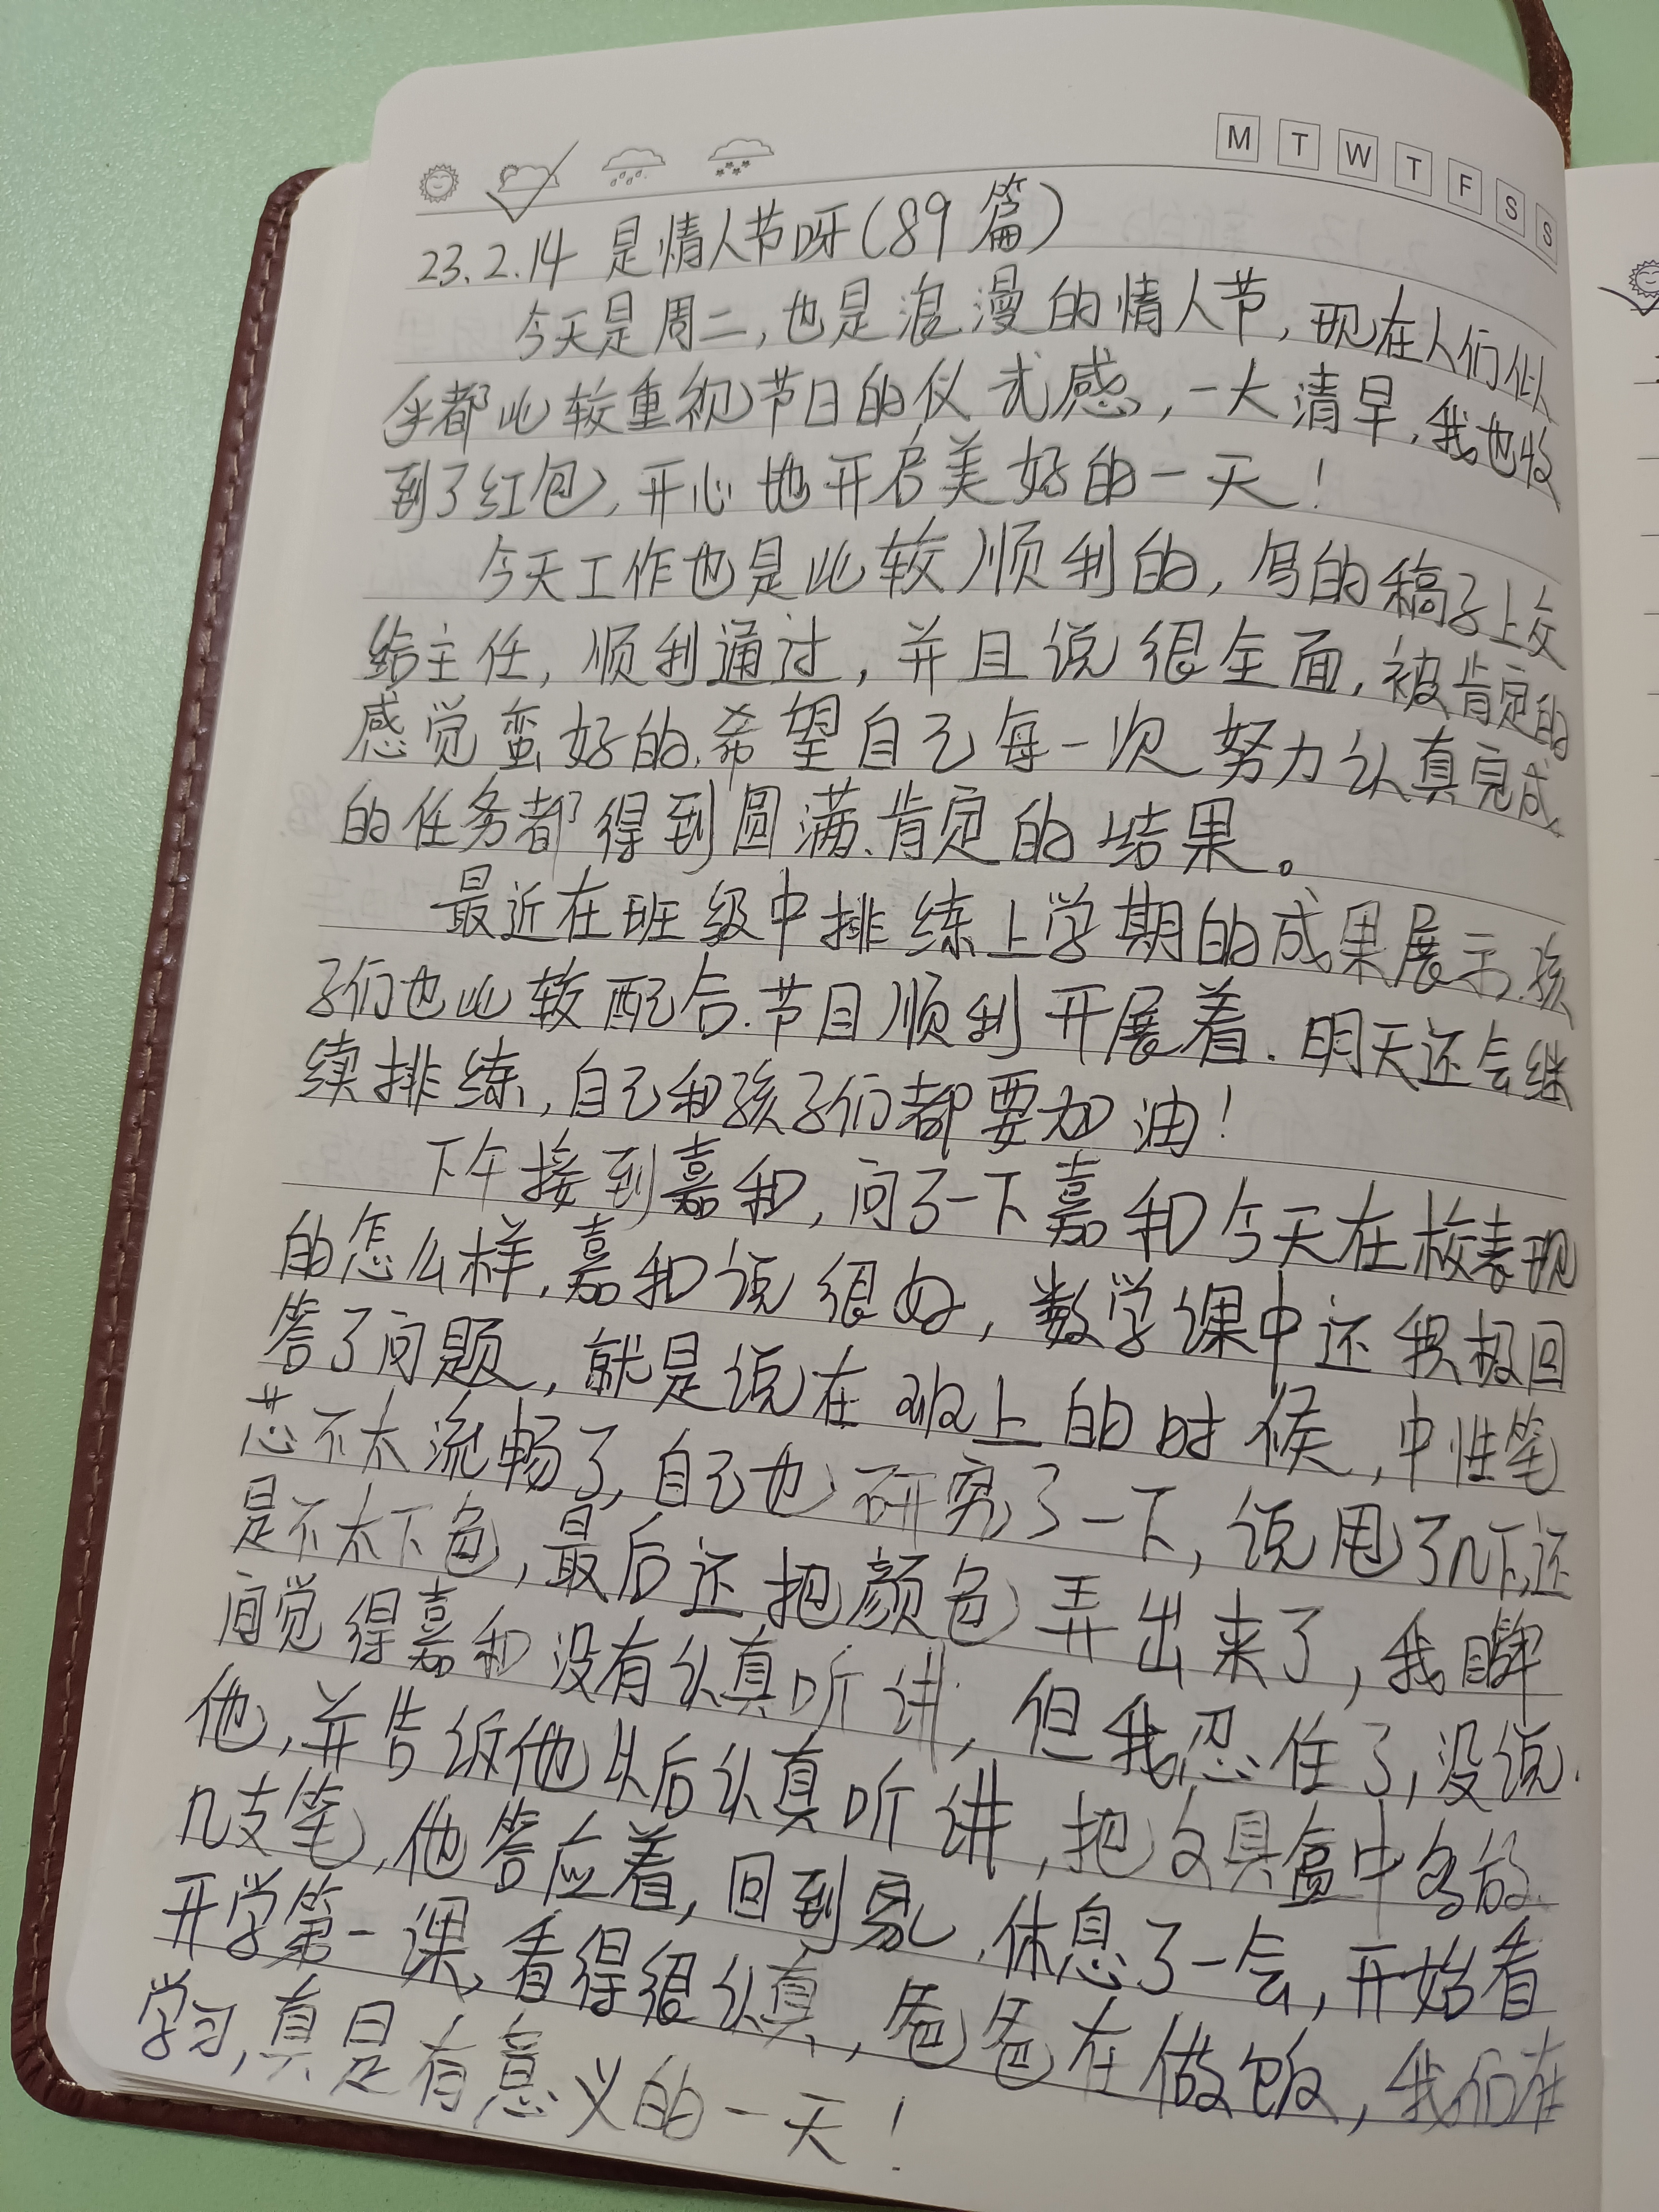 M T W T F S S
23.2.14 是情人节呀(89篇)
今天是周二,也是浪漫的情人节,现在人们似
乎都比较重视节日的仪式感,一大清早,我也收
到了红包,开心地开启美好的一天!
今天工作也是比较顺利的,写的稿子上交
给主任,顺利通过,并且说很全面,被肯定的
感觉蛮好的.希望自己每一次努力认真完成
的任务都得到圆满、肯定的结果。
最近在班级中排练上学期的成果展示.孩
子们也比较配合.节目顺利开展着.明天还会继
续排练,自己和孩子们都要加油!
下午接到嘉和,问了一下嘉和今天在校表现
的怎么样,嘉和说很好,数学课中还积极回
答了问题,就是说在班上的时候,中性笔
芯不太流畅了,自己也研究了一下,说甩了几下,还
是不太下色,最后还把颜色弄出来了,我瞬
间觉得嘉和没有认真听讲,但我忍住了,没说
他,并告诉他以后认真听讲,把文具盒中多放
几支笔,他答应着,回到家,休息了一会,开始看
开学第一课,看得很认真,爸爸在做饭,我们在
学习,真是有意义的一天!